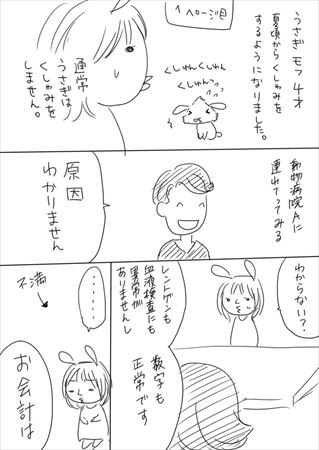 1ページ目
うさぎ モフ 4才
夏頃からくしゃみを
するようになりました。
くしゅんくしゅん
くしゅんっ
通常
うさぎは
くしゃみを
しません。
動物病院Aに
連れてってみる
原因
わかりません
わからない?
レントゲンも
血液検査にも
異常が
ありませんし
数字も
正常です
・・・・・
不満
お会計は